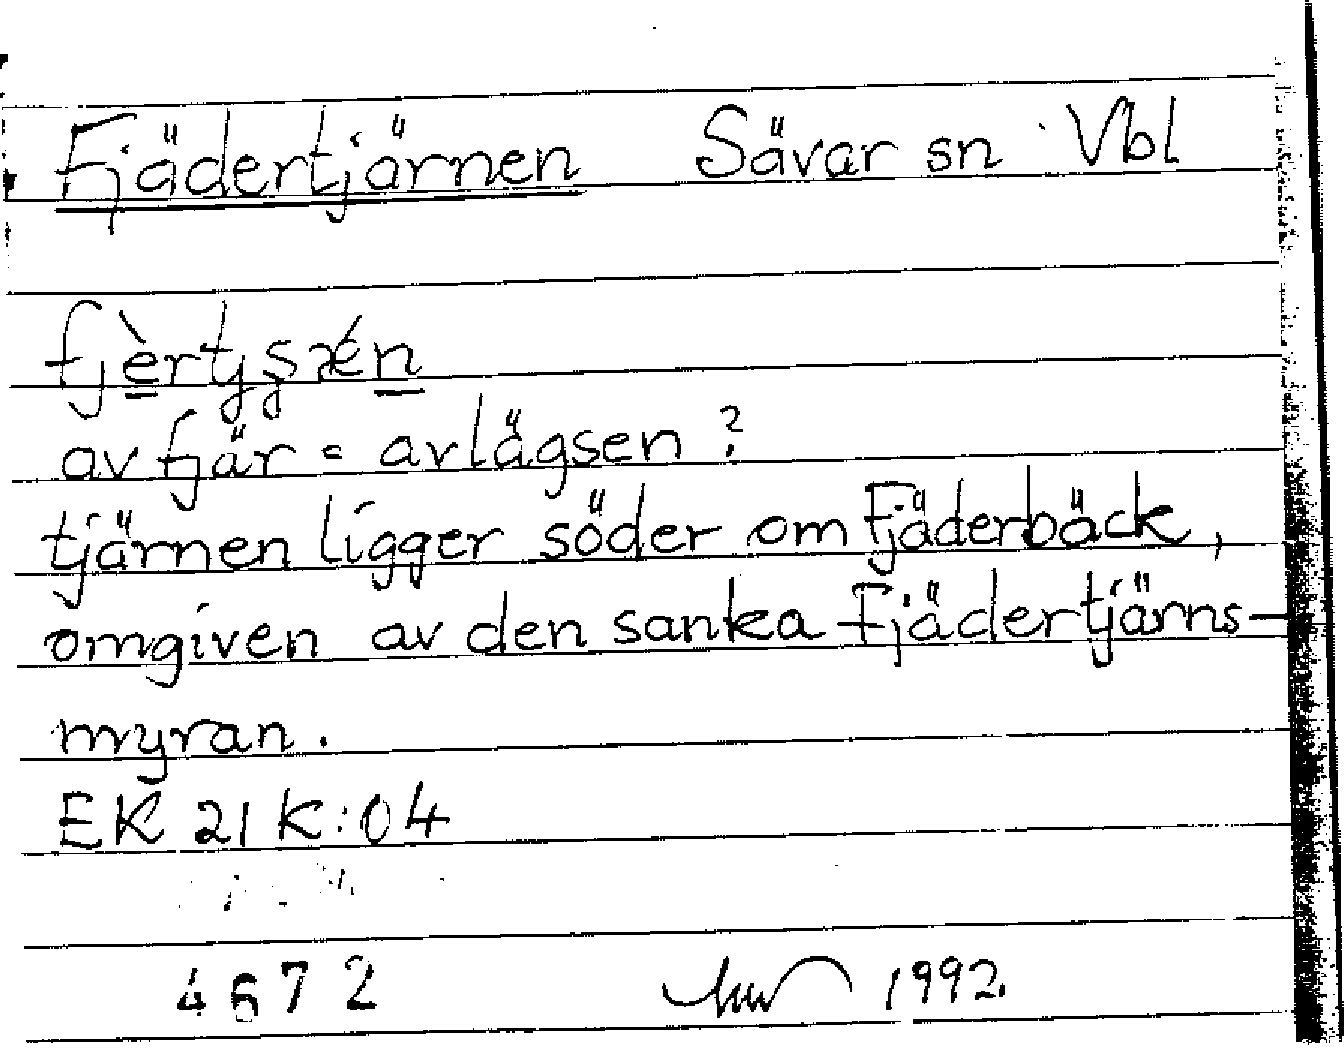 Fjädertjärnen Sävar sn Vbl
av fjär = avlägsen?
tjärnen ligger söder om Fjäderbäck,
omgiven av den sanka Fjädertjärns-
myran.
EK 21 K:04
4672 1992